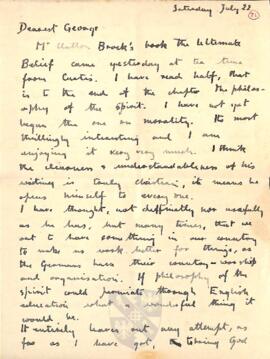 Saturday July 22
Dearest George
Mr Clutton Brock's book the Ultimate
Belief came yesterday at tea time
from Curtis. I have read half, that
is to the end of the chapter The philos-
ophy of the Spirit. I have not yet
begun the one on morality. Its most
thrillingly interesting and I am
enjoying it very very much. I think
the clearness & understandableness of his
writing is truly christian, it means he
opens himself to every one.
I have thought, not definitely nor usefully
as he has, but many times, that we
ought to have something in our country
to make us work better for things, as
the Germans have their country-worship
and organisation. If philosophy of the
spirit could permeate through English
education what a wonderful thing it
would be.
It entirely leaves out any attempt, as
far as I have got, bring God